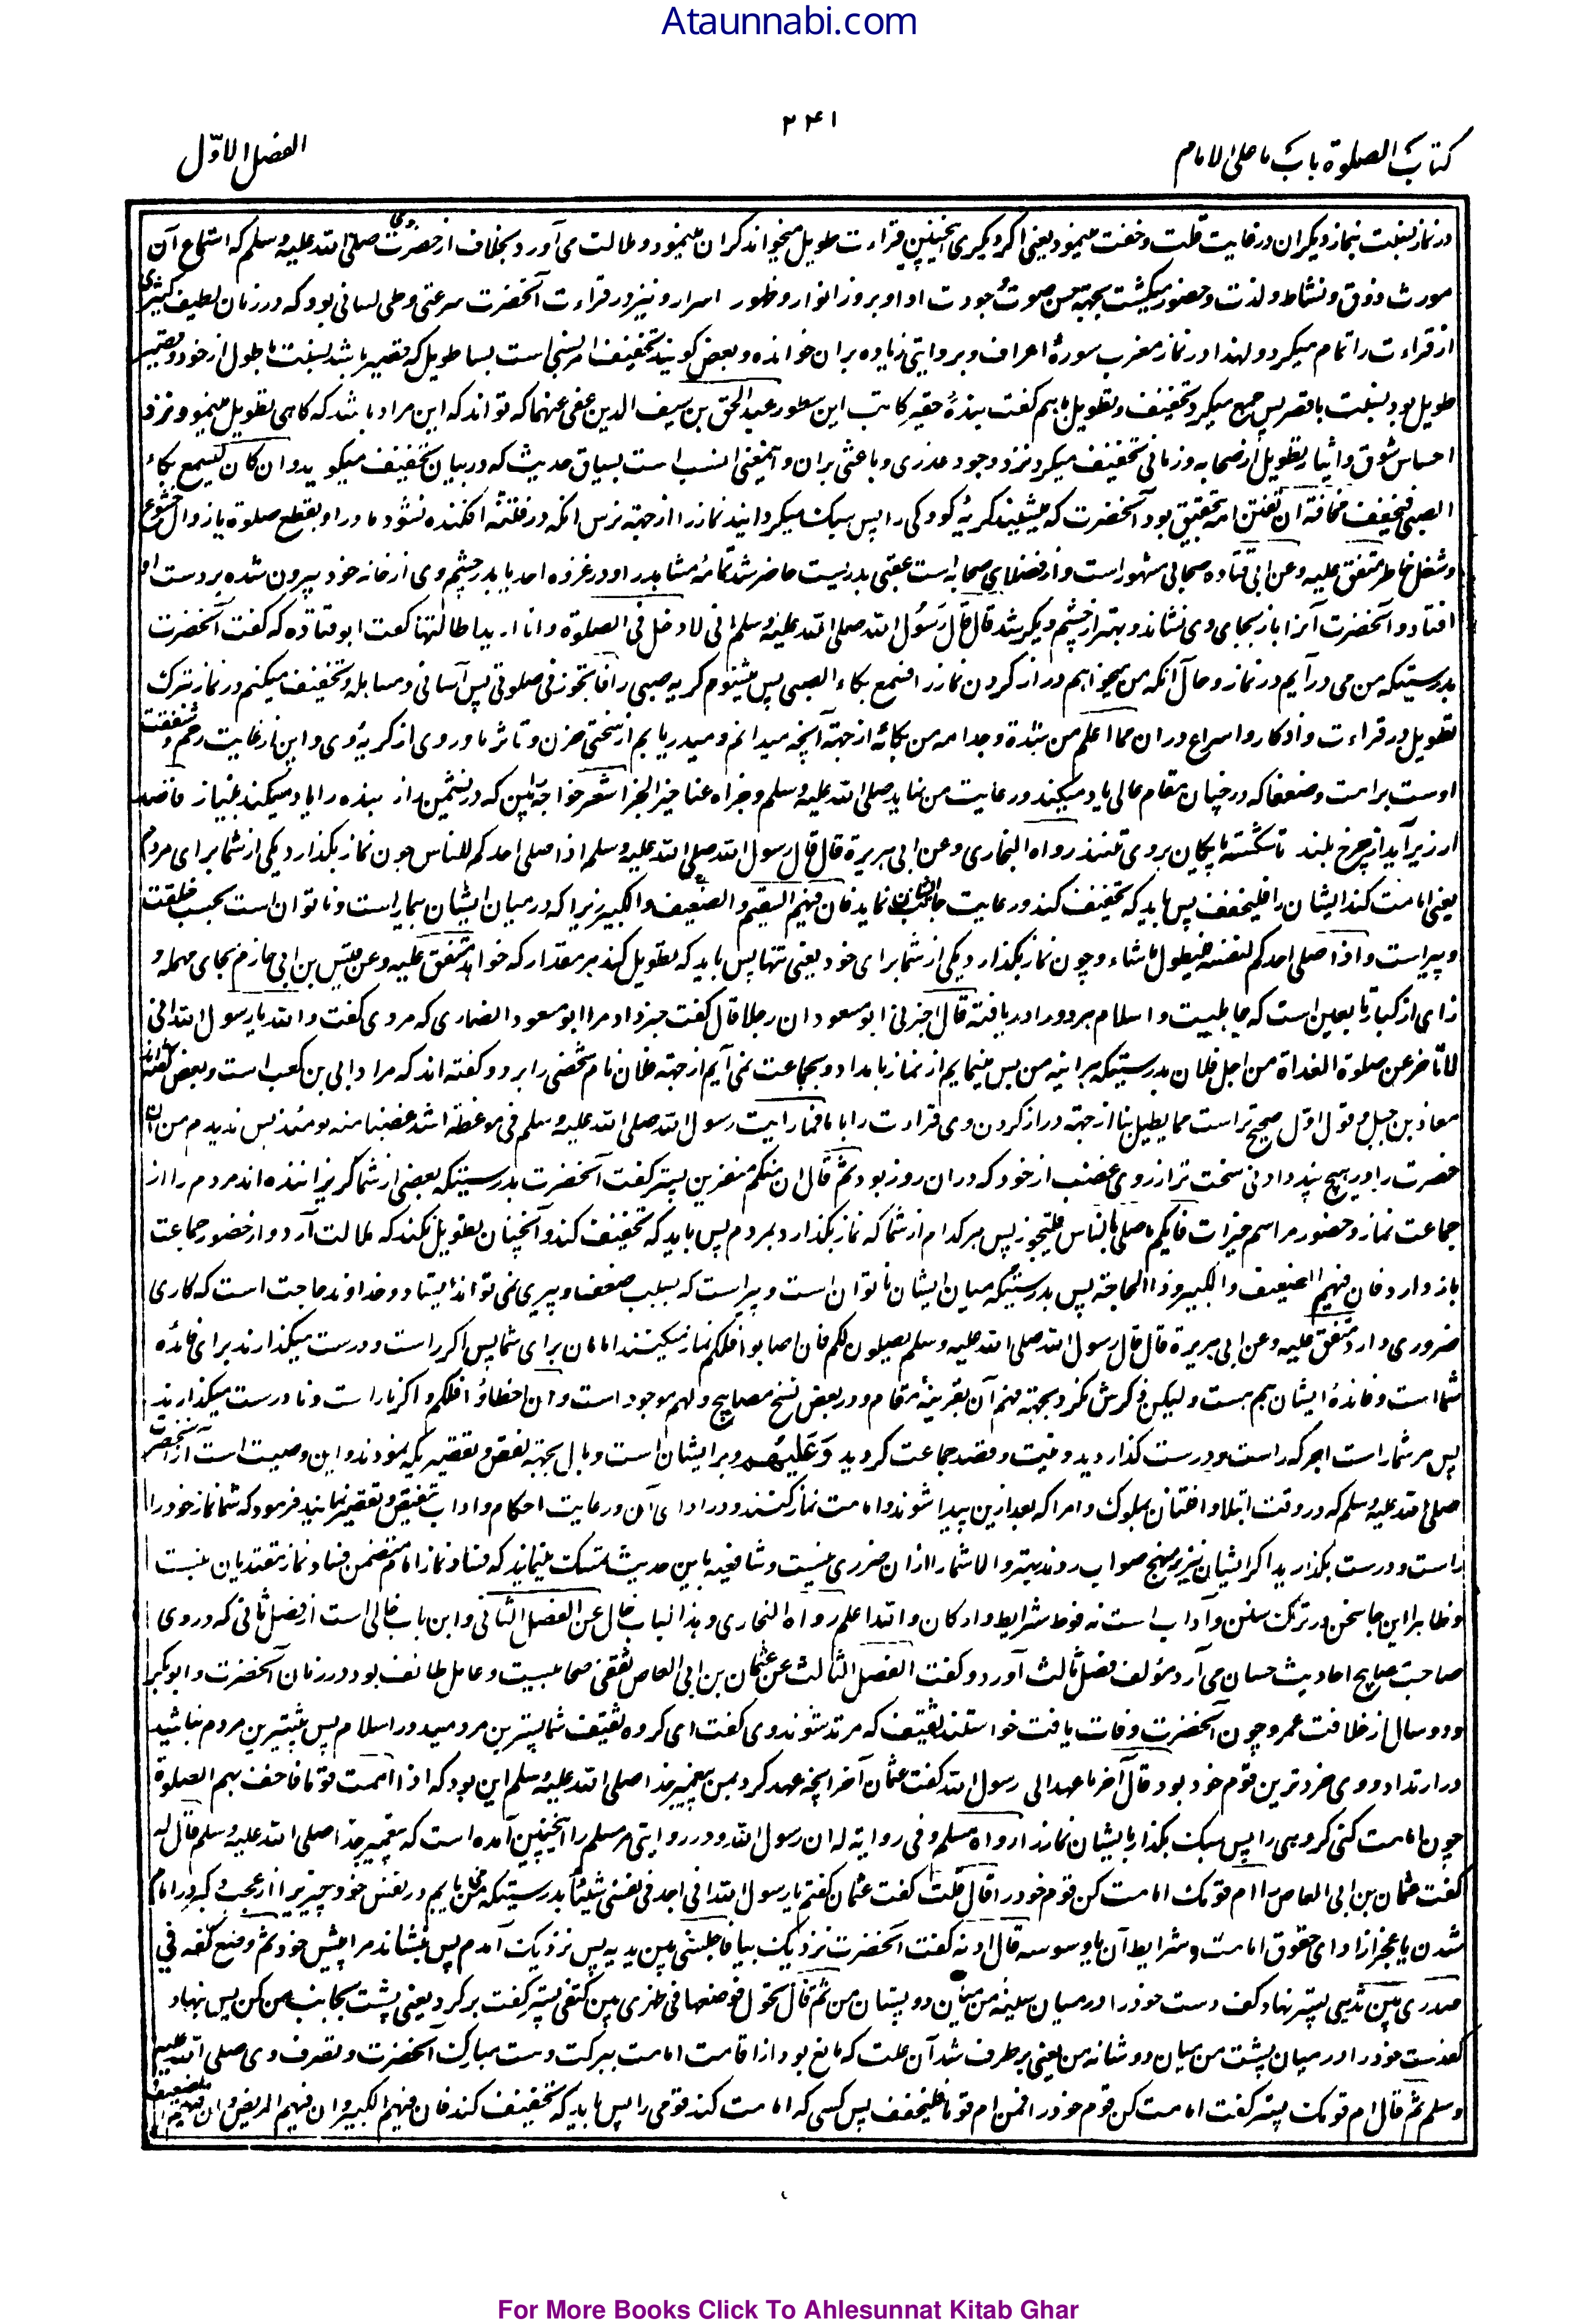 Ataunnabi.com
۲۴۱
کتاب الصلوة باب ما علی الامام
الفصل الاوّل
در نماز نسبت بنماز دیگران در غایت قلت و خفت مینمود یعنی اگر دیگری اینچنین قراءت طویل میخواند گران مینمود و ملالت می آورد بخلاف از حضرت صلی الله علیه وسلم که استماع آن
مورث ذوق و نشاط و لذت و حضور میگشت بجهة حسن صوت و جودت ادا و بروز انوار و ظهور اسرار و نیز در قراءت آنحضرت سرعتی و طی لسانی بود که در زمان لطیف کثیری
از قراءت را تمام میکرد و لهذا در نماز مغرب سورهٔ اعراف و بروایتی زیاده بران خوانده و بعض گویند تخفیف امر نسبی است بسا طویل که قصیر باشد نسبت با طول از خود و قصیر
طویل بود نسبت باقصر پس جمع میکرد تخفیف و تطویل باهم گفت بندهٔ حقیر کاتب این سطور عبد الحق بن سیف الدین عفی عنهما که تواند که این مراد باشد که گاهی تطویل مینمود نزد
احساس شوق و ایثار تطویل از صحابه و زمانی تخفیف میکرد نزد وجود عذری و باعثی بران و اینمعنی انسب است بسیاق حدیث که در بیان تخفیف میگوید و ان کان لیسمع بکاء
الصبی فیخفف مخافة ان تفتن امه بتحقیق بود آنحضرت که میشنید گریهٔ کودکی را پس سبک میگردانید نماز را از جهة ترس انکه در فتنه افکنده نشود مادر او بقطع صلوة یا زوال خشوع
و شغل خاطر متفق علیه وعن ابی قتاده صحابی مشهور است و از فضلای صحابه است عقبی بدریست حاضر شد تمامهٔ مشاهد را و در غزوه احد یا بدر چشم وی از خانه خود بیرون شده بر دست او
افتاد و آنحضرت آنرا باز بجای وی نشاند و بهتر از چشم دیگر شد قال قال رسول الله صلی الله علیه وسلم انی لادخل فی الصلوة وانا ارید اطالتها گفت ابو قتاده که گفت آنحضرت
بدرستیکه من می درآیم در نماز و حال آنکه من میخواهم دراز کردن نماز را فاسمع بکاء الصبی پس میشنوم گریه صبی را فاتجوز فی صلوتی پس آسانی و مساهله و تخفیف میکنم در نماز بترک
تطویل در قراءت و اذکار و اسراع دران مما اعلم من شدة وجد امه من بکائه از جهة آنچه میدانم و میدریابم از سختی حزن و تاثر مادر وی از گریهٔ وی و این از غایت رحم و شفقت
اوست بر امت و ضعفا که در چنان مقام عالی یاد میکند و رعایت من نماید صلی الله علیه وسلم و جزاه عنا خیر الجزا شعر
ار زیر آید از چرخ بلند تا شکسته پایکان بر وی تنند رواه البخاری وعن ابی هریرة قال قال رسول الله صلی الله علیه وسلم اذا صلی احدکم للناس چون نماز بگذارد یکی از شما برای مردم
یعنی امامت کند ایشان را فلیخفف پس باید که تخفیف کند و رعایت جانب ایشان نماید فان فیهم السقیم والضعیف والکبیر زیرا که در میان ایشان بیمار است و ناتوان است بحسب خلقت
و پیر است واذا صلی احدکم لنفسه فلیطول ما شاء و چون نماز بگذارد یکی از شما برای خود یعنی تنها پس باید که تطویل کند هر مقدار که خواهد متفق علیه وعن قیس بن ابی حازم بحای مهمله و
زای از کبار تابعین است که جاهلیت و اسلام هر دو را دریافته قال اخبرنی ابو مسعود ان رجلا قال گفت خبر داد مرا ابو مسعود انصاری که مردی گفت والله یا رسول الله انی
لاتاخر عن صلوة الغداة من اجل فلان بدرستیکه هر آینه من پس مینمایم از نماز بامداد و بجماعت نمی آیم از جهة فلان نام شخصی را برد و گفته اند که مراد ابی بن کعب است و بعض گفته اند
معاذ بن جبل و قول اوّل صحیح تر است مما یطیل بنا از جهة دراز کردن وی قراءت را با ما فما رایت رسول الله صلی الله علیه وسلم فی موعظة اشد غضبا منه یومئذ پس ندیدم من آن
حضرت را در هیچ پند دادنی سخت تر از روی غضب از خود که دران روز بود ثم قال ان منکم منفرین پستر گفت آنحضرت بدرستیکه بعضی از شما گریزاننده اند مردم را از
جماعت نماز و حضور مراسم خیرات فایکم ما صلی بالناس فلیتجوز پس هر کدام از شما که نماز بگذارد بمردم پس باید که تخفیف کند و آنچنان تطویل نکند که ملالت آرد و از حضور جماعت
باز دارد فان فیهم الضعیف والکبیر وذا الحاجة پس بدرستیکه میان ایشان ناتوان است و پیر است که بسبب ضعف و پیری نمی تواند ایستاد و خداوند حاجت است که کاری
ضروری دارد متفق علیه وعن ابی هریرة قال قال رسول الله صلی الله علیه وسلم یصلون لکم فان اصابوا فلکم نماز میکنند امامان برای شما پس اگر راست و درست میگذارند برای فائدهٔ
شما است و فائدهٔ ایشان هم هست و لیکن ذکرش نکرد بجهة فهم آن بقرینهٔ مقام و در بعض نسخ مصابیح ولهم موجود است وان اخطاؤا فلکم و اگر ناراست و نادرست میگذارند
پس مر شما راست اجر که راست و درست گذاردید و نیت و قصد جماعت کردید وعلیهم و بر ایشان است وبال بجهة نقص و تقصیر یکه نمودند و این وصیت است از آنحضرت
صلی الله علیه وسلم که در وقت ابتلا و افتتان بملوک و امرا که بعد ازین پیدا شوند و امامت نماز کنند و در ادای آن و رعایت احکام و آداب تنقیص و تقصیر نمایند فرمود که شما نماز خود را
راست و درست بگذارید اگر ایشان نیز بر منهج صواب روند بهتر والا شما را ازان ضرری نیست و شافعیه باین حدیث تمسک مینمایند که فساد نماز امام متضمن فساد نماز مقتدیان نیست
و ظاهرا این جا سخن در ترک سنن و آداب است نه فوط شرایط و ارکان والله اعلم رواه البخاری وهذا الباب خال عن الفصل الثانی و این باب خالی است از فصل ثانی که در وی
صاحب مصابیح احادیث حسان می آرد مؤلف فصل ثالث آورد و گفت الفصل الثالث عن عثمان بن ابی العاص ثقفی صحابیست و عامل طائف بود در زمان آنحضرت و ابوبکر
و دو سال از خلافت عمر و چون آنحضرت وفات یافت خواستند ثقیف که مرتد شوند وی گفت ای گروه ثقیف شما پسترین مردمید در اسلام پس پیشترین مردم نباشید
در ارتداد و وی خردترین قوم خود بود قال آخر ما عهد الی رسول الله گفت عثمان آخر آنچه عهد کرد بمن پیغمبر خدا صلی الله علیه وسلم این بود که اذا اممت قوما فاخف بهم الصلوة
چون امامت کنی گروهی را پس سبک بگذار بایشان نماز را رواه مسلم وفی روایة له ان رسول الله و در روایتی مر مسلم را اینچنین آمده است که پیغمبر خدا صلی الله علیه وسلم قال له
گفت عثمان بن ابی العاص را ام قومک امامت کن قوم خود را قال قلت گفت عثمان گفتم یا رسول الله انی اجد فی نفسی شیئا بدرستیکه من می یابم در نفس خود چیزی را از عجب و کبر در امام
شدن یا عجز از ادای حقوق امامت و شرایط آن یا وسوسه قال ادنه گفت آنحضرت نزدیک بیا فاجلسنی بین یدیه پس نزدیک آمدم پس بنشاند مرا پیش خود ثم وضع کفه فی
صدری بین ثدیی پستر نهاد کف دست خود را در میان سینهٔ من میان دو پستان من ثم قال تحول فوضعها فی ظهری بین کتفی پستر گفت برگرد یعنی پشت بجانب من کن پس نهاد
کف دست خود را در میان پشت من میان دو شانه من یعنی بر طرف شد آن علت که مانع بود از اقامت امامت ببرکت دست مبارک آنحضرت و تصرف وی صلی الله علیه
وسلم ثم قال ام قومک پستر گفت امامت کن قوم خود را فمن ام قوما فلیخفف پس کسی که امامت کند قومی را پس باید که تخفیف کند فان فیهم الکبیر وان فیهم المریض وان فیهم الضعیف
For More Books Click To Ahlesunnat Kitab Ghar